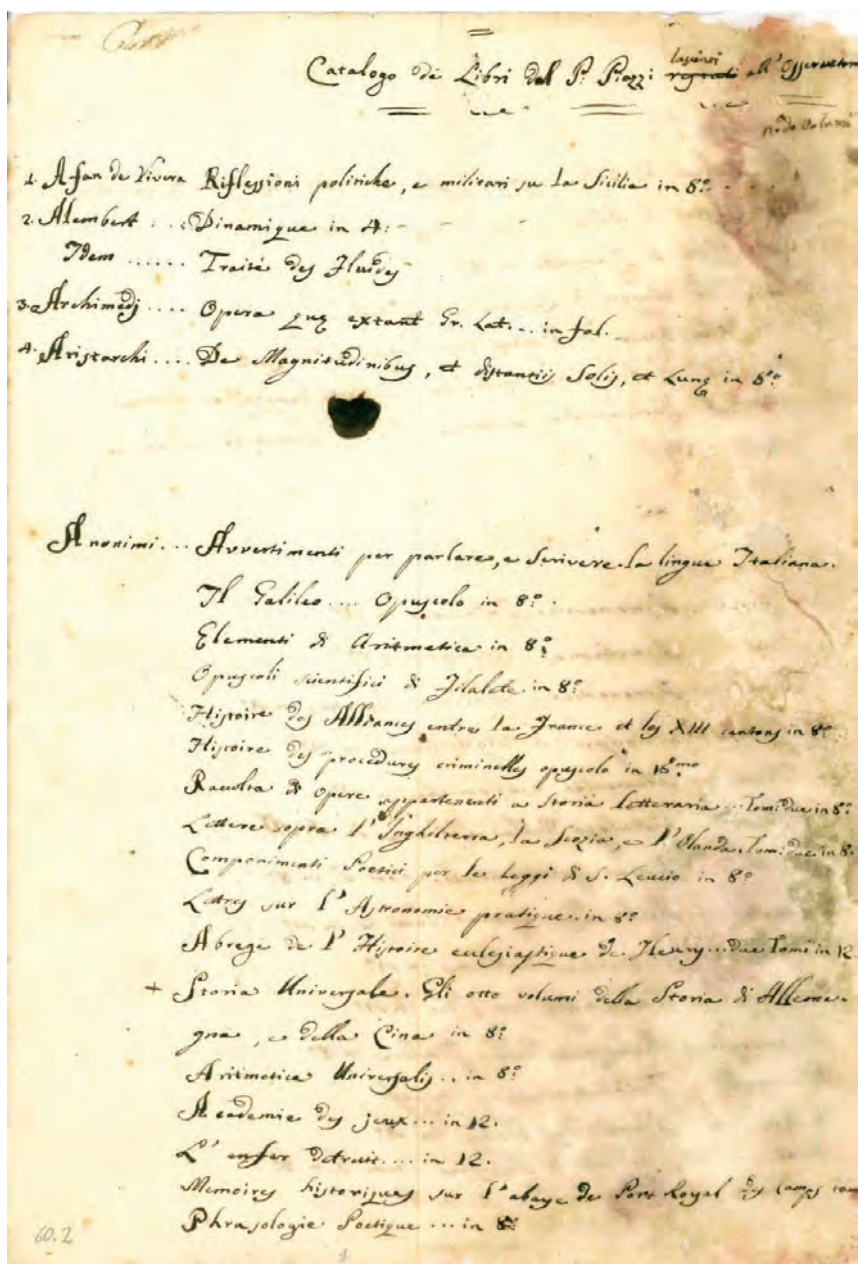 Catalogo de Libri del P. Piazzi lasciati regalati all'Osservatorio
n.o de Volumi
1. Afan de Rivera Riflessioni politiche, e militari su la Sicilia in 8.o
2. Alembert .... Dinamique in 4.
Idem ...... Traité des Fluides
3. Archimedis .... Opera quę extant Gr. Lat... in fol.
4. Aristarchi .... De Magnitudinibus, et distantiis Solis, et Lunę in 8.o
Anonimi ... Avvertimenti per parlare, e scrivere la lingua Italiana.
Il Galileo .... Opuscolo in 8.o
Elementi di Aritmetica in 8.o
Opuscoli scientifici di Filalete in 8.o
Histoire des Alliances entre la France et les XIII cantons in 8.o
Histoire des procedures criminelles opuscolo in 16.mo
Raccolta di opere appartenenti a Storia letteraria... Tom: due in 8.o
Lettere sopra l'Inghilterra, la Scozia, e l'Olanda. Tom: due in 8.
Componimenti Poetici per le Leggi di S. Leucio in 8.o
Lettres sur l'Astronomie pratique. in 8.o
Abregé de l'Histoire ecclesiastique de Fleury... due Tomi in 12
+ Storia Universale. Gli otto volumi della Storia di Allema-
gna, e della Cina in 8.o
Aritmetica Universalis... in 8.o
Academie des jeux... in 12.
L'enfer detruit.... in 12.
Memoires historiques sur l'abaye de Port Royal des camps tom
Phrasologie Poetique... in 8.o
60.2
1